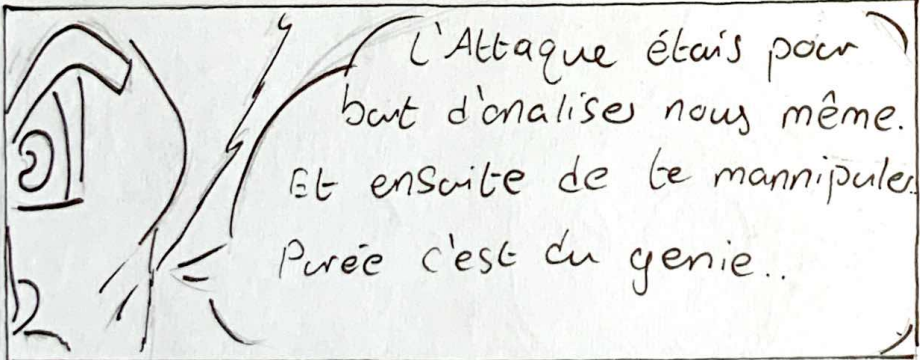 L'Attaque étais pour
but d'analises nous même.
Et ensuite de te mannipuler.
Purée c'est du genie..